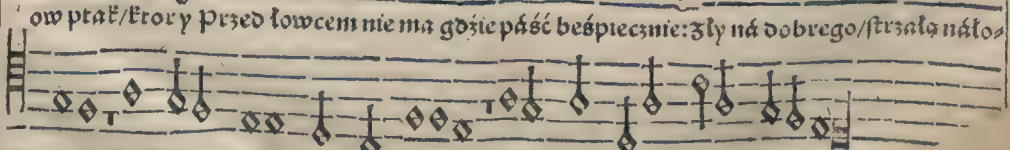 ow ptak/ktory przed łowcem nie ma gdzie páść beśpiecznie: Zły ná dobrego/strzałą náło⸗